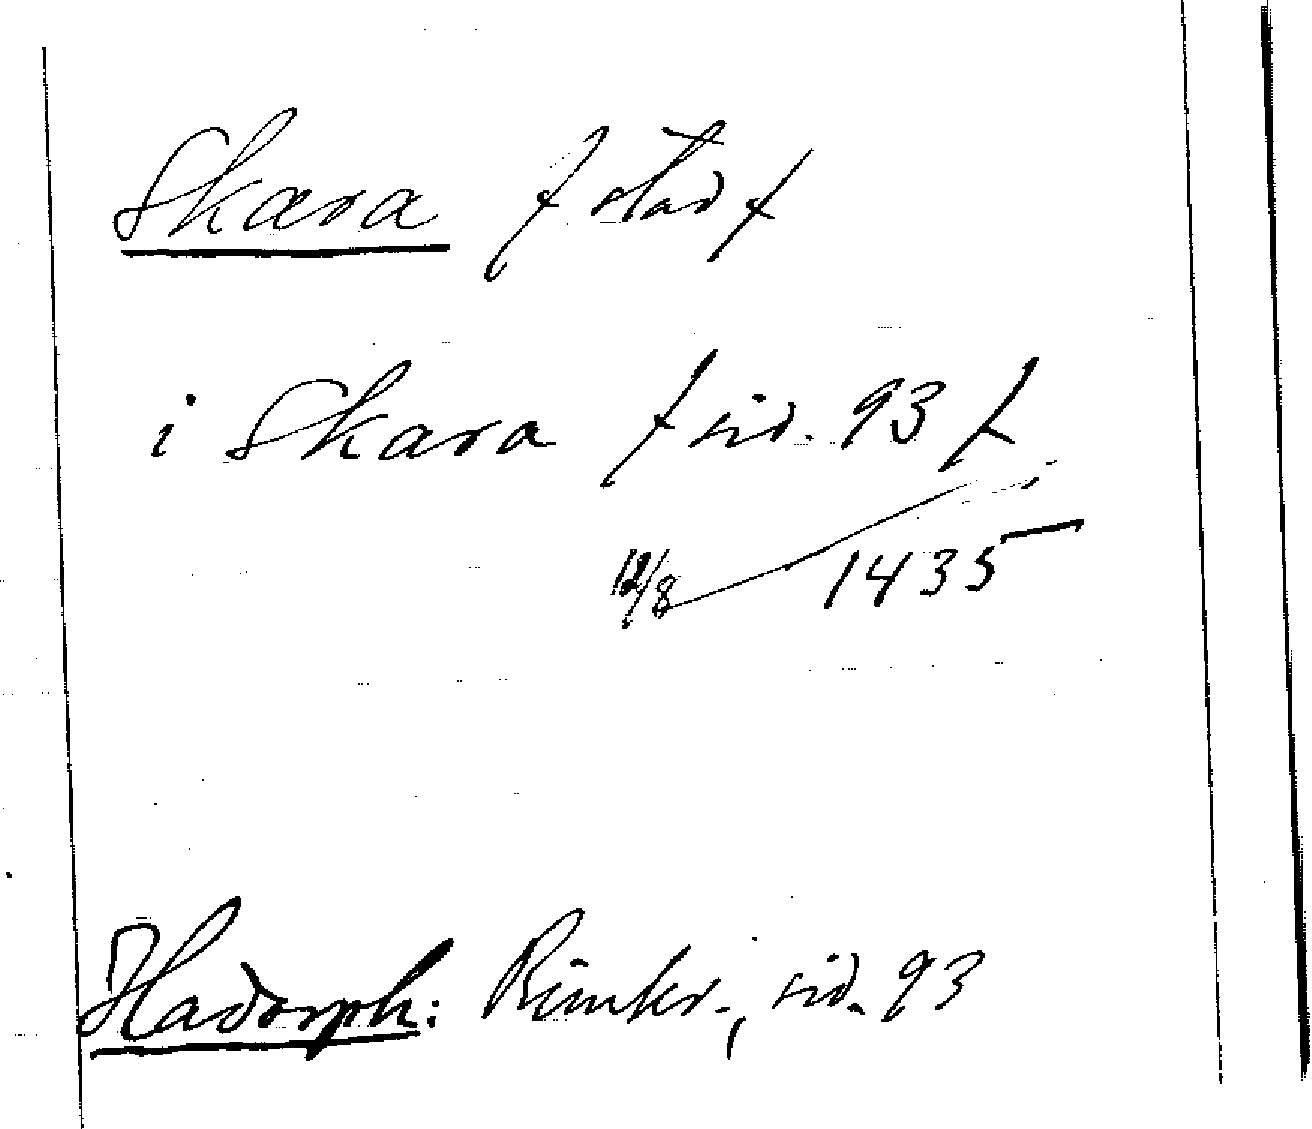 Skara / stad /
i Skara / sid. 93 /
12/8 1435
Hadorph: Rimkr., sid. 93